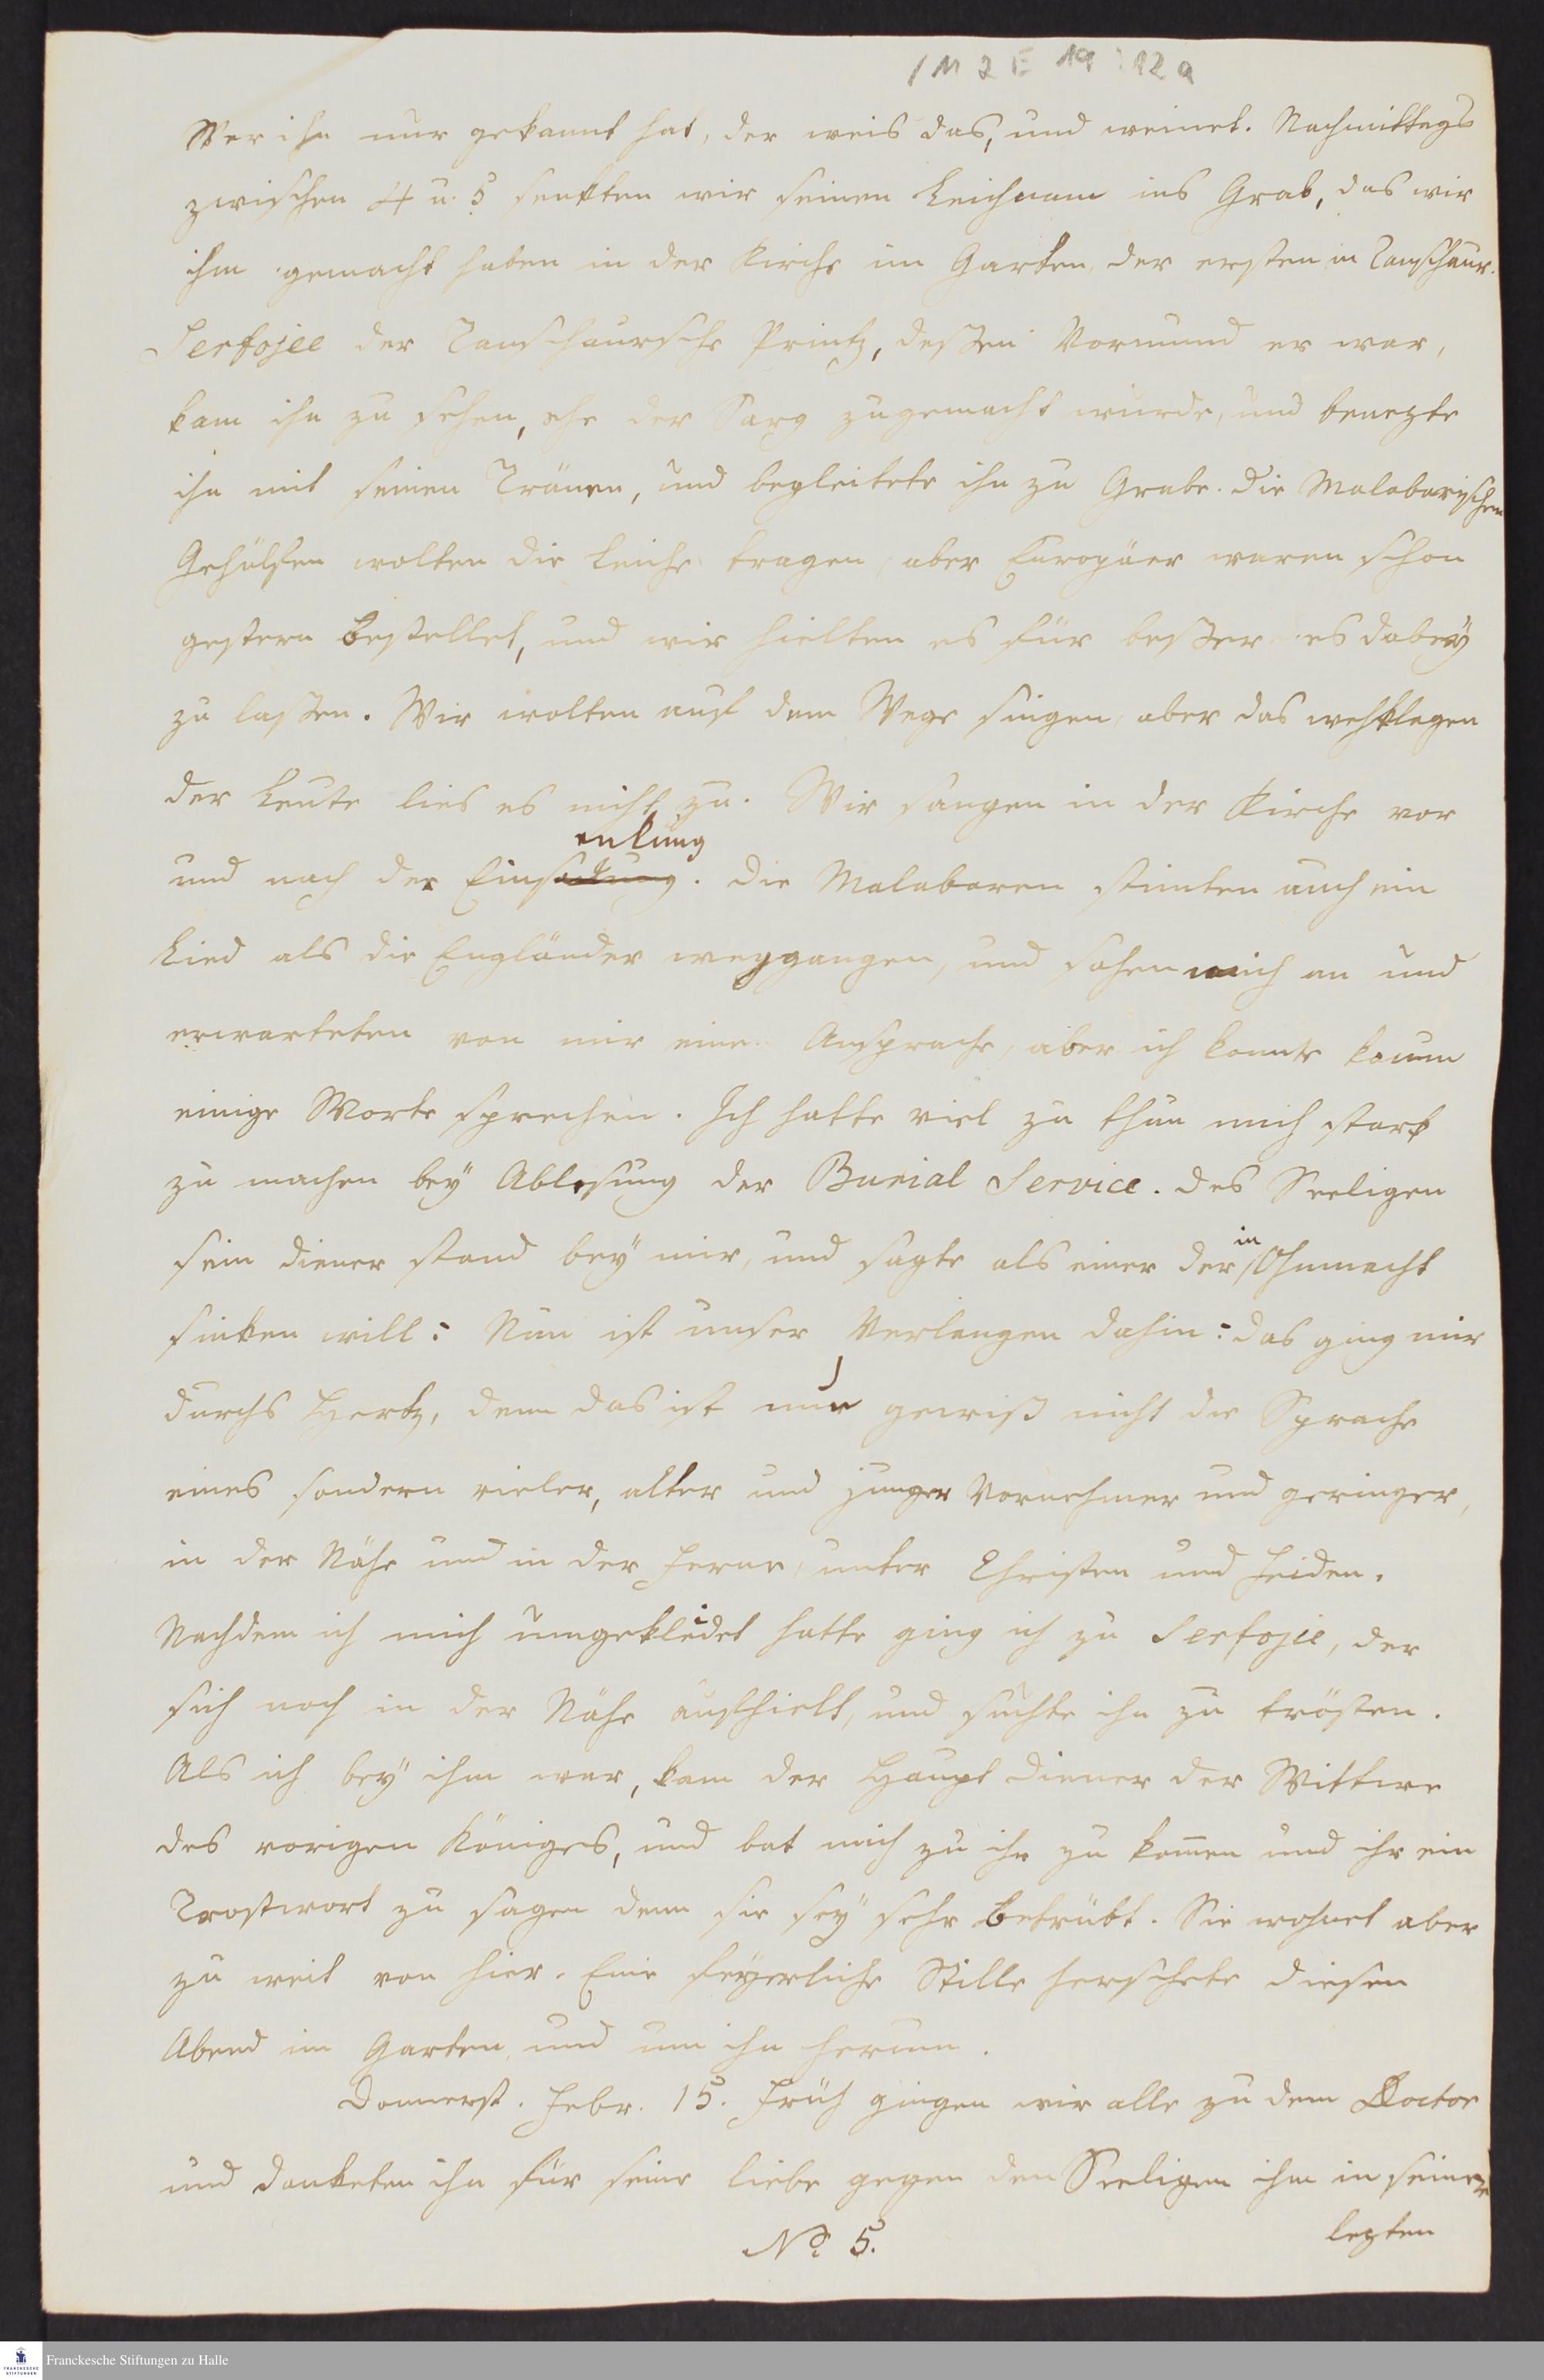 1 M 2 E 19 : 12 a
Wer ihn nur gekannt hat, der weis das, und weinet. Nachmittags
zwischen 4 u. 5 senkten wir seinen Leichnam ins Grab, das wir
ihm gemacht haben in der Kirche im Garten, der ersten in Tanschaur.
Serfojee der Tanschaursche Printz, deßen Vormund er war,
kam ihn zu sehen, ehe der Sarg zugemacht wurde, und benezte
ihn mit seinen Tränen, und begleitete ihn zu Grabe. Die Malabarischen
Gehülfen wolten die Leiche tragen, aber Europäer waren schon
gestern bestellet, und wir hielten es für beßer es dabey
zu laßen. Wir wolten auf dem Wege singen, aber das wehklagen
der Leute lies es nicht zu. Wir sangen in der Kirche vor
enkung
und nach der Eins. Die Malabaren stimten auch ein
Lied als die Engländer weggangen, und sahen mich an und
erwarteten von mir eine Ansprache, aber ich konnte kaum
einige Worte sprechen. Ich hatte viel zu thun mich stark
zu machen bey Ablesung der Burial Service. Des Seeligen
in
sein Diener stand bey mir, und sagte als einer der Ohnmacht
sinken will: Nun ist unser Verlangen dahin: das ging mir
durchs Hertz, denn das ist nun gewiß nicht die Sprache
eines sondern vieler, alter und junger Vornehmer und geringer,
in der Nähe und in der Ferne, unter Christen und Heiden.
Nachdem ich mich umgekleidet hatte ging ich zu Serfojee, der
sich noch in der Nähe aufhielt, und suchte ihn zu trösten.
Als ich bey ihm war, kam der Haupt Diener der Wittwe
des vorigen Königes, und bat mich zu ihr zu kom̅en und ihr ein
Trostwort zu sagen denn sie sey sehr betrübt. Sie wohnet aber
zu weit von hier. Eine feyerliche Stille herschete diesen
Abend im Garten und um ihn herum.
Donnerst. Febr. 15. Früh gingen wir alle zu dem Doctor
und danketen ihn für seine liebe gegen den Seeligen ihm in seinen
lezten
No. 5.
Franckesche Stiftungen zu Halle